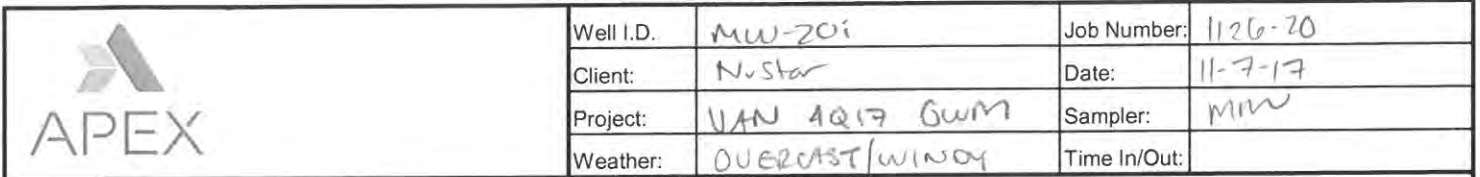 APEX
Well I.D. MW-20i Job Number: 1126-20
Client: NuStar Date: 11-7-17
Project: VAN 4Q17 GWM Sampler: MIW
Weather: OVERCAST/WINDY Time In/Out: